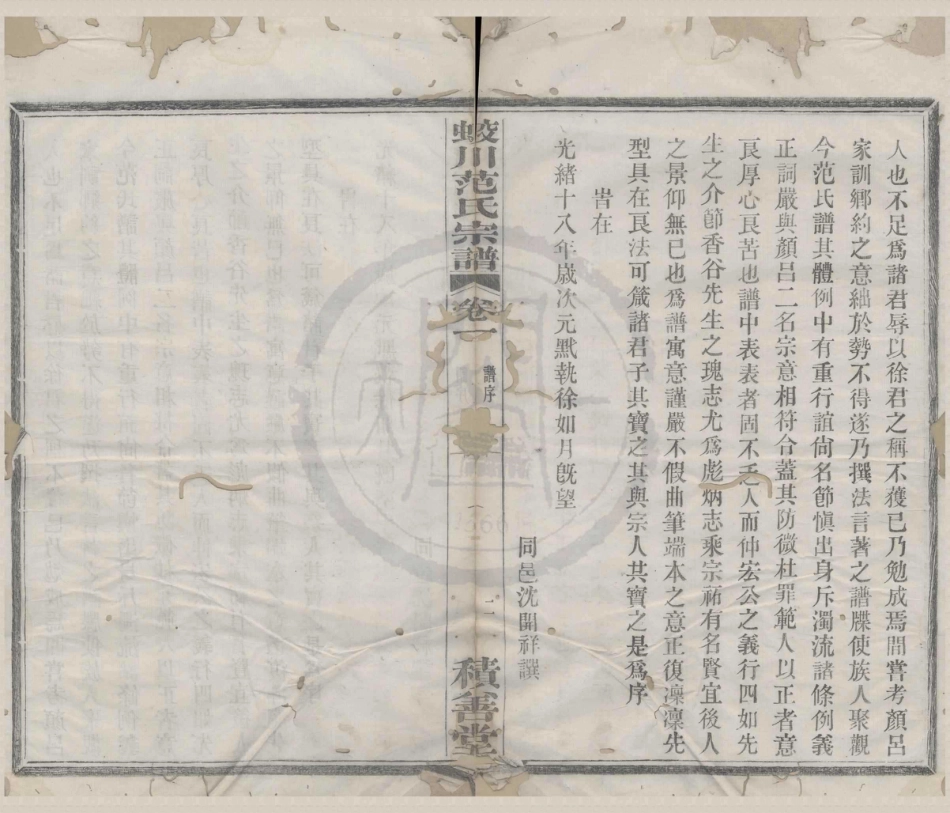 人也不足爲諸君辱以徐君之稱不獲已乃勉成焉間嘗考顏呂
家訓鄉約之意絀於勢不得遂乃撰法言著之譜牒使族人聚觀
今范氏譜其體例中有重行誼尙名節愼出身斥濁流諸條例義
正詞嚴與顏呂二名宗意相符合蓋其防微杜罪範人以正者意
良厚心良苦也譜中表表者固不乏人而仲宏公之義行四如先
生之介節香谷先生之瑰志尤爲彪炳志乘宗祏有名賢宜後人
之景仰無已也爲譜寓意謹嚴不假曲筆端本之意正復凜凜先
型具在良法可箴諸君子其寶之其與宗人共寶之是爲序
旹在
光緒十八年歲次元黓執徐如月旣望
同邑沈開祥譔
蛟川范氏宗譜
卷一
譜序
二
積善堂